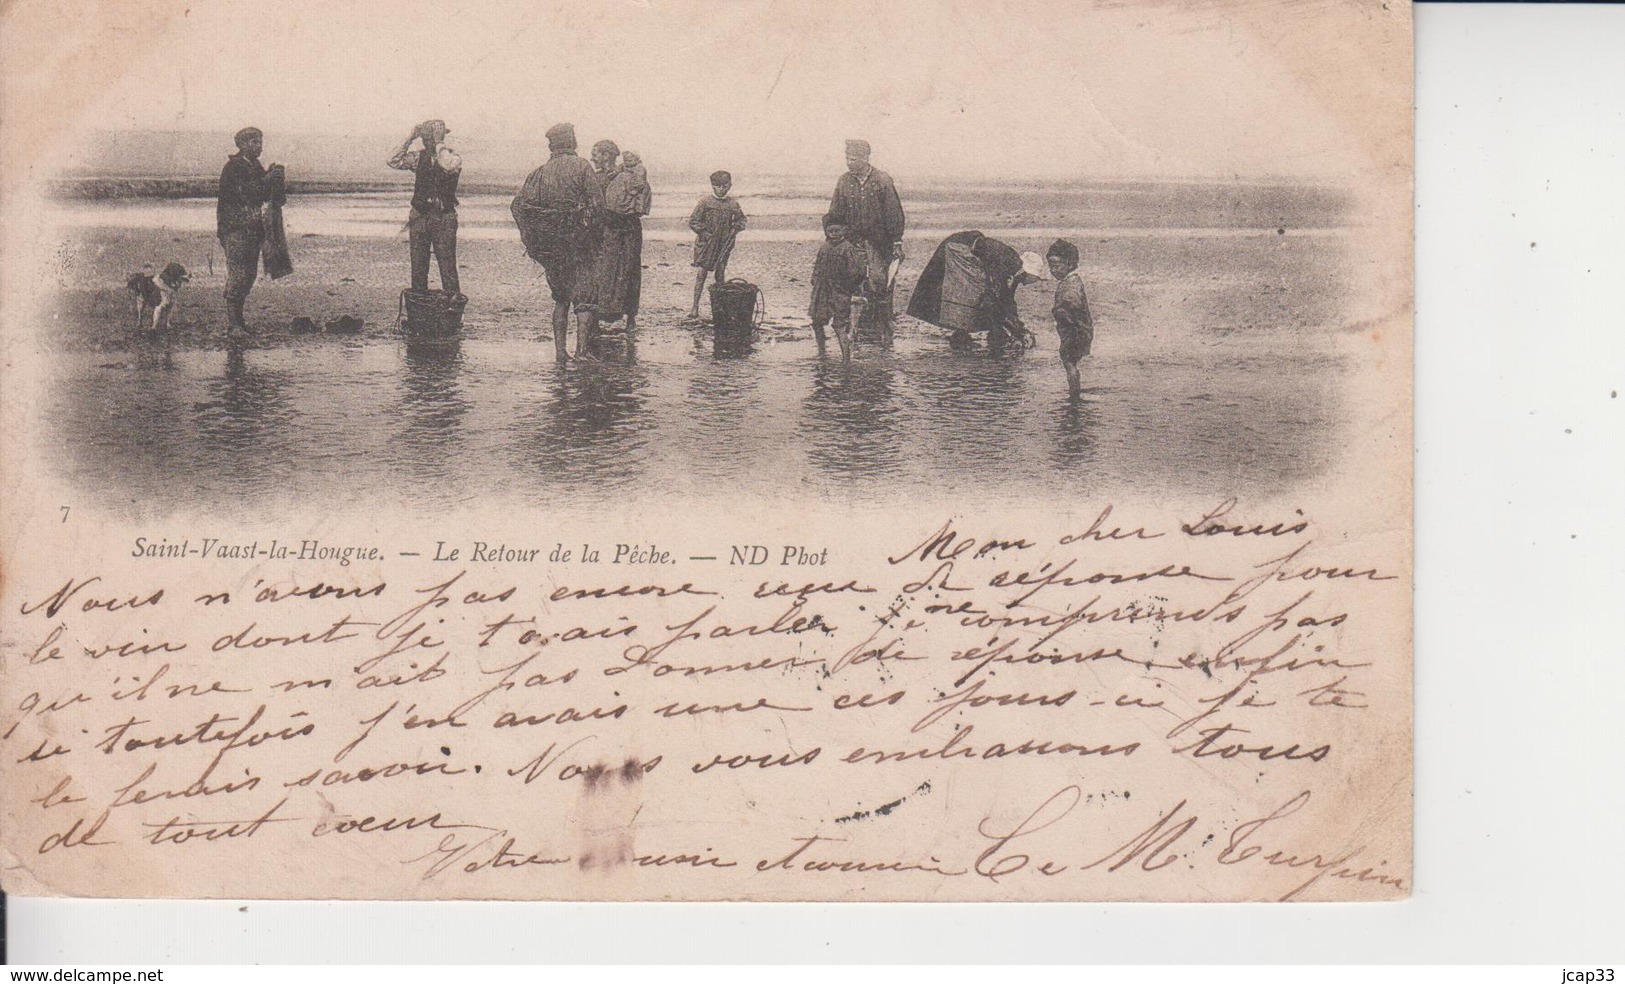 7
Saint-Vaast-la-Hougue. — Le Retour de la Pêche. — ND Phot
Mon cher Louis
Nous n'avons pas encore reçu de réponse pour
le vin dont je t'avais parler je ne comprends pas
qu'il ne m'ait pas donner de réponse. enfin
si toutefois j'en avais une ces jours-ci je te
le ferais savoir. Nous vous embrassons tous
de tout cœur
Votre cousin et cousine C et M. Turpin
www.delcampe.net
jcap33